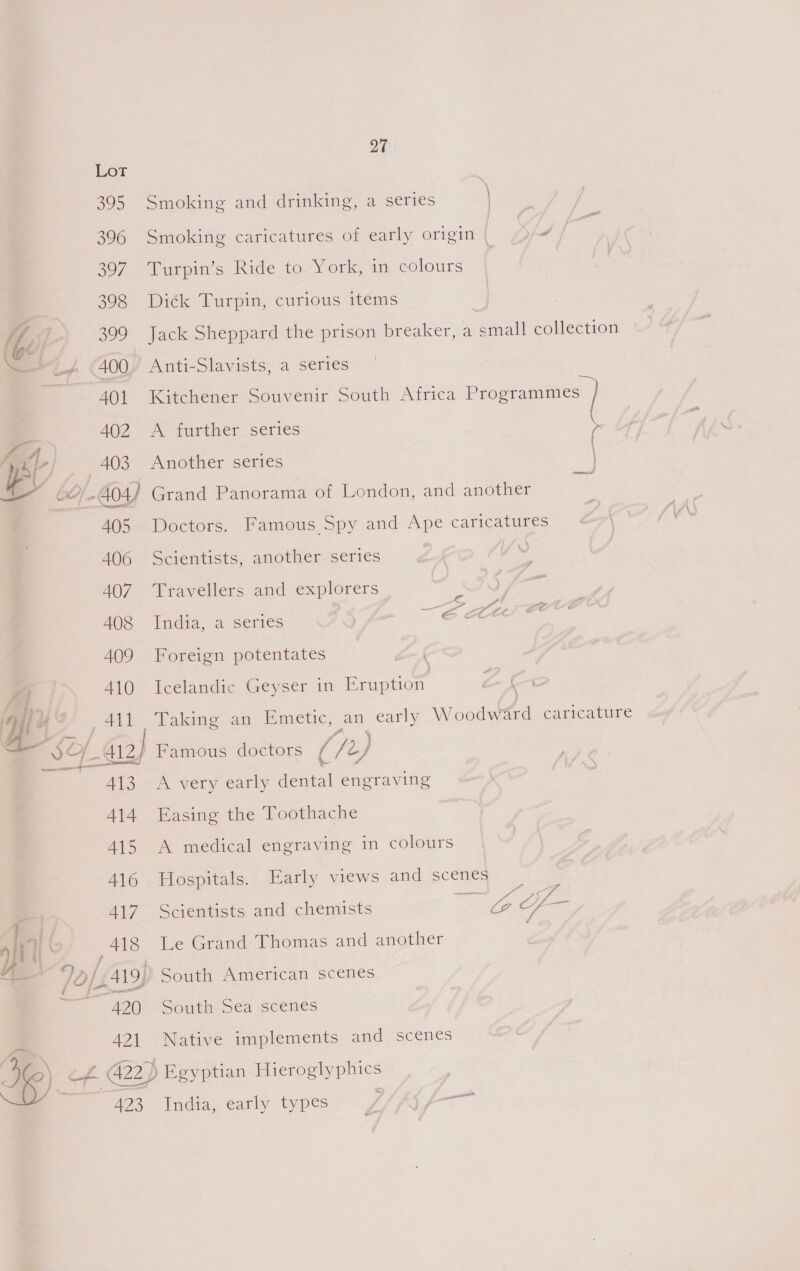 27
Lot
395 Smoking and drinking, a series
396 Smoking caricatures of early origin
397 Turpin's Ride to York, in colours
398 Dick Turpin, curious items
399 Jack Sheppard the prison breaker, a small collection
400 Anti-Slavists, a series
401 Kitchener Souvenir South Africa Programmes
402 A further series
403 Another series
60/- 404 Grand Panorama of London, and another
405 Doctors. Famous Spy and Ape caricatures
406 Scientists, another series
407 Travellers and explorers
408 India, a series
409 Foreign potentates
410 Icelandic Geyser in Eruption
411 Taking an Emetic, an early Woodward caricature
50/- 412 Famous doctors (/2)
413 A very early dental engraving
414 Easing the Toothache
415 A medical engraving in colours
416 Hospitals. Early views and scenes
417 Scientists and chemists
418 Le Grand Thomas and another
70/- 419 South American scenes
420 South Sea scenes
421 Native implements and scenes
422 Egyptian Hieroglyphics
423 India, early types